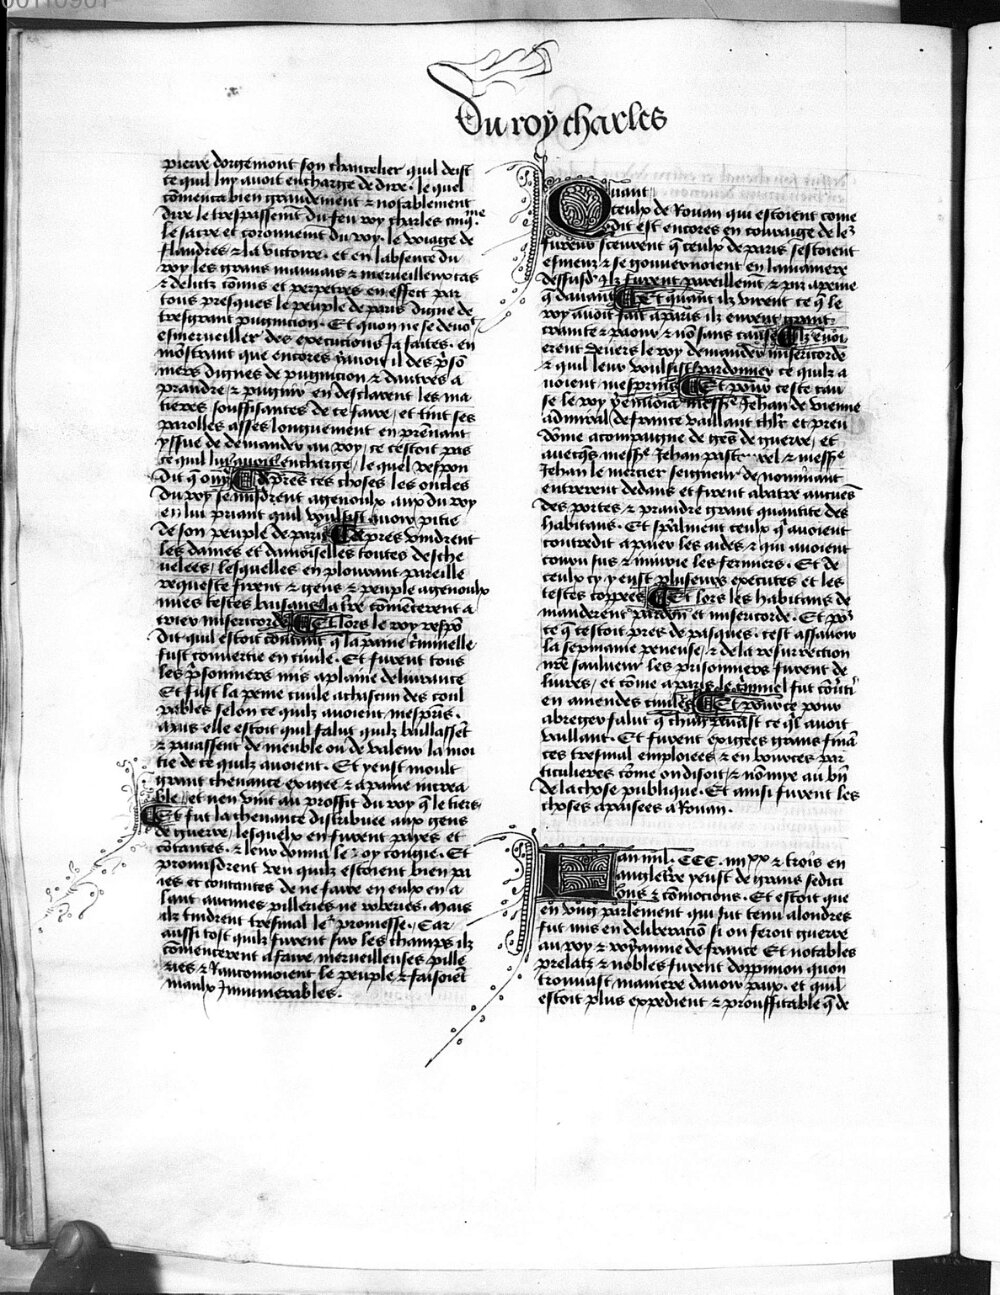 Du roy charles
pierre dorgemont son chancelier quil deist
ce quil luy avoit encharge de dire . le quel
cōmenca bien grandement ⁊ notablement
dire le trespassemt̄ du feu roy charles cinq.me
le sacre et coronnemt̄ du roy . le voiage de
flandres ⁊ la victoire . et en labsence du
roy les grans mauuais ⁊ merueilleux cas
⁊ delitz cōmis et perpetres en effect par
tous presques le peuple de paris digne de
tresgrant pugnicion . Et quon ne se devoit
esmerueiller des execucions ja faites . en
mōstrant que encores y auoit il des p̄sō
niers dignes de pugnicion ⁊ dautres a
prandre ⁊ pugnir en desclarent les ma
tieres souffisantes de ce faire / et tint ses
parolles asses longuement en prenant
yssue de demander au roy / ce cestoit pas
ce quil luy auoit encharge / le quel respon
dit q̄ ouy Apres ces choses les oncles
du roy se misdrent agenoulx aux du roy
en lui priant quil voulsist auoir pitie
de son peuple de paris Apres vindrent
les dames et damoiselles toutes desche
uelees / lesquelles en plourant pareille
requeste firent ⁊ gens ⁊ peuple agenoulx
nues testes baisans la tre cōmēcerent a
crier misericorde Et lors le roy respō
dit quil estoit contant q̄ la paine criminelle
fust conuertie en ciuile . Et furent tous
les p̄sonniers mis a plaine deliurance
Et fust la peine ciuile a chascun des coul
pables selon ce quilz auoient mespris .
mais elle estoit quil falut quilz baillassēt
⁊ paiassent de meuble ou de valeur la moi
tie de ce quilz auoient . Et yeust moult
grant cheuance exigee ⁊ a paine increa
ble / et nen vint au proffit du roy q̄ le tiers
Et fut la cheuance distribuee aux gens
de guerre / lesquelx en furent paies et
cōtantes . ⁊ leur donna le roy congie . Et
promisdrent veu quilz estoient bien pa
ies et contantes de ne faire en eulx en a
lant aucunes pilleries ne roberies . mais
ilz tindrent tresmal le̾ promesse . Car
aussi tost quilz furent sur les champs ilz
cōmencerent a faire merueilleuses pille
ries ⁊ rançonnoient le peuple ⁊ faisoiēt
maulx jnnumerables .
Quant
ceulx de Rouan qui estoient come
dit est encores en couraige de lez
fureur sceurent q̄ ceulx de paris sestoient
esmeuz ⁊ se gouuernoient en la maniere
dessusd̾ ilz furent pareillemt̄ ⁊ piz a peine
q̄ dauant Et quant ilz virent ce q̄ le
roy auoit fait a paris ilz eurent grant
crainte ⁊ paour ⁊ nō sans cause Ilz enuoi
erent deuers le roy demander misericorde
⁊ quil leur voulsist pardonner ce quilz a
uoient mespris Et pour ceste cau
se le roy y enuoia messe̾ Jehan de vienne
admiral de france vaillant chlr et preu
dōme acompaigne de gēs de guerre / et
auecq̄s messe̾ Jehan pastorel ⁊ messe̾
Jehan le mercier seigneur de nouuiant
entrerent dedans et firent abatre aucūes
des portes ⁊ prandre grant quantite des
habitans . Et sp̄alment ceulx q̄ auoient
contredit a paier les aides ⁊ qui auoient
couru sus ⁊ iniurie les fermiers . Et de
ceulx cy y eust plusieurs executes et les
testes coppees Et lors les habitans de
manderent pardon et misericorde . Et po̾
ce q̄ cestoit pres de pasques . cest assauoir
la sepmaine peneuse / ⁊ de la resurrection
nr̄e sauluenr les prisonniers furent de
liures / et cōme a paris le cri̾mel fut cōu̾ti
en amendes ciuiles Et pource pour
abreger falut q̄ chun̄ paiast ce q̄l auoit
vaillant . Et furent exigees grans finā
ces tresmal emploiees ⁊ en bources par
ticulieres cōme on disoit / ⁊ nō mye au biē
de la chose publique . Et ainsi furent les
choses apaisees a Rouan .
Lan mil . CCC . iiii xx ⁊ trois en
angletr̄e yeust de grans sedici
ons ⁊ cōmocions . Et estoit que
en vng parlement qui fut tenu a londres
fut mis en deliberaciō si on feroit guerre
au roy ⁊ royaume de france Et notables
prelatz ⁊ nobles furent doppinion quon
trouuast maniere dauoir paix . et quil
estoit plus expedient ⁊ prouffitable q̄ de